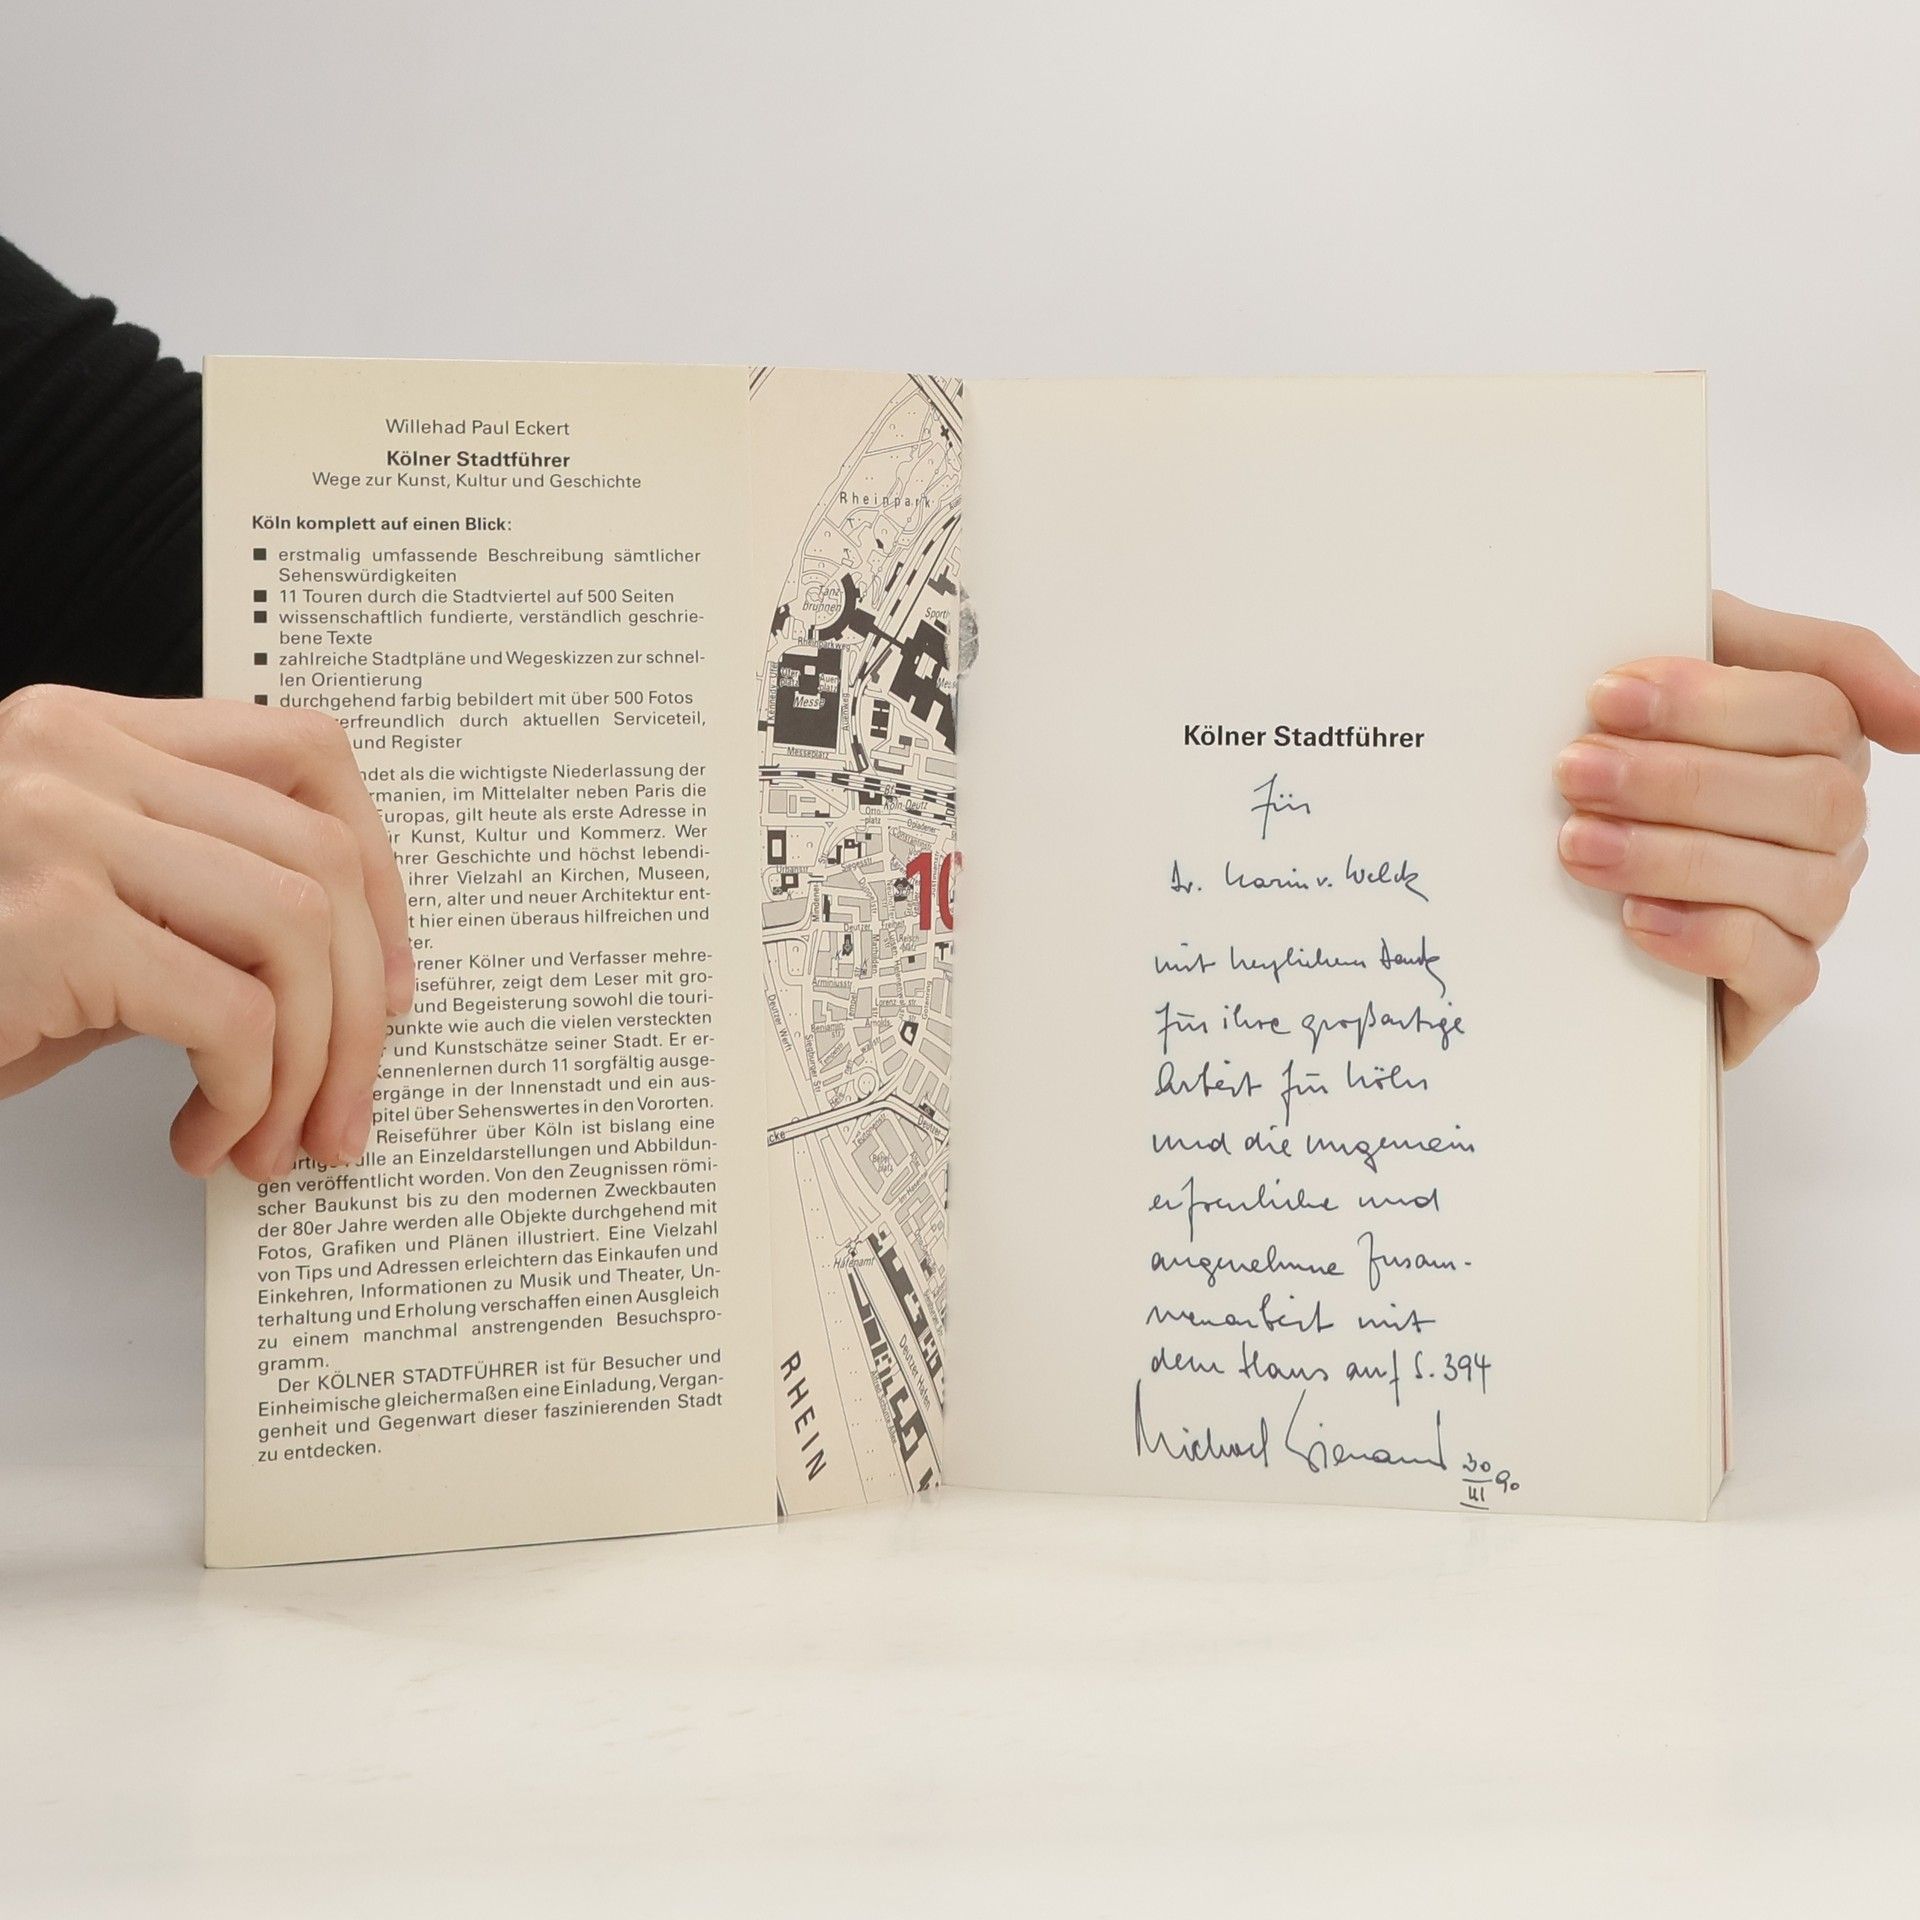 Willehad Paul Eckert
Kölner Stadtführer
Wege zur Kunst, Kultur und Geschichte
Köln komplett auf einen Blick:
■ erstmalig umfassende Beschreibung sämtlicher
Sehenswürdigkeiten
■ 11 Touren durch die Stadtviertel auf 500 Seiten
■ wissenschaftlich fundierte, verständlich geschrie-
bene Texte
■ zahlreiche Stadtpläne und Wegeskizzen zur schnel-
len Orientierung
■ durchgehend farbig bebildert mit über 500 Fotos
erfreundlich durch aktuellen Serviceteil,
und Register
ndet als die wichtigste Niederlassung der
rmanien, im Mittelalter neben Paris die
Europas, gilt heute als erste Adresse in
ür Kunst, Kultur und Kommerz. Wer
hrer Geschichte und höchst lebendi-
ihrer Vielzahl an Kirchen, Museen,
ern, alter und neuer Architektur ent-
t hier einen überaus hilfreichen und
ter.
orener Kölner und Verfasser mehre-
iseführer, zeigt dem Leser mit gro-
und Begeisterung sowohl die touri-
punkte wie auch die vielen versteckten
und Kunstschätze seiner Stadt. Er er-
Kennenlernen durch 11 sorgfältig ausge-
ergänge in der Innenstadt und ein aus-
pitel über Sehenswertes in den Vororten.
Reiseführer über Köln ist bislang eine
artige Fülle an Einzeldarstellungen und Abbildun-
gen veröffentlicht worden. Von den Zeugnissen römi-
scher Baukunst bis zu den modernen Zweckbauten
der 80er Jahre werden alle Objekte durchgehend mit
Fotos, Grafiken und Plänen illustriert. Eine Vielzahl
von Tips und Adressen erleichtern das Einkaufen und
Einkehren, Informationen zu Musik und Theater, Un-
terhaltung und Erholung verschaffen einen Ausgleich
zu einem manchmal anstrengenden Besuchspro-
gramm.
Der KÖLNER STADTFÜHRER ist für Besucher und
Einheimische gleichermaßen eine Einladung, Vergan-
genheit und Gegenwart dieser faszinierenden Stadt
zu entdecken.
Rheinpark
Tanz-
brunnen
Rheinparkweg
Messe
Auenweg
Messeplatz
Bf.
Köln-Deutz
Otto-
platz
10
Deutzer
Arminiusstr.
Deutzer Werft
Siegburger Str.
Hafenamt
Deutzer Hafen
RHEIN
Kölner Stadtführer
Für
Dr. Karin v. Welck
mit herzlichem Dank
für ihre großartige
Arbeit für Köln
und die ungemein
erfreuliche und
angenehme Zusam-
menarbeit mit
dem Haus auf S. 394
Michael Wienand 30
III 90